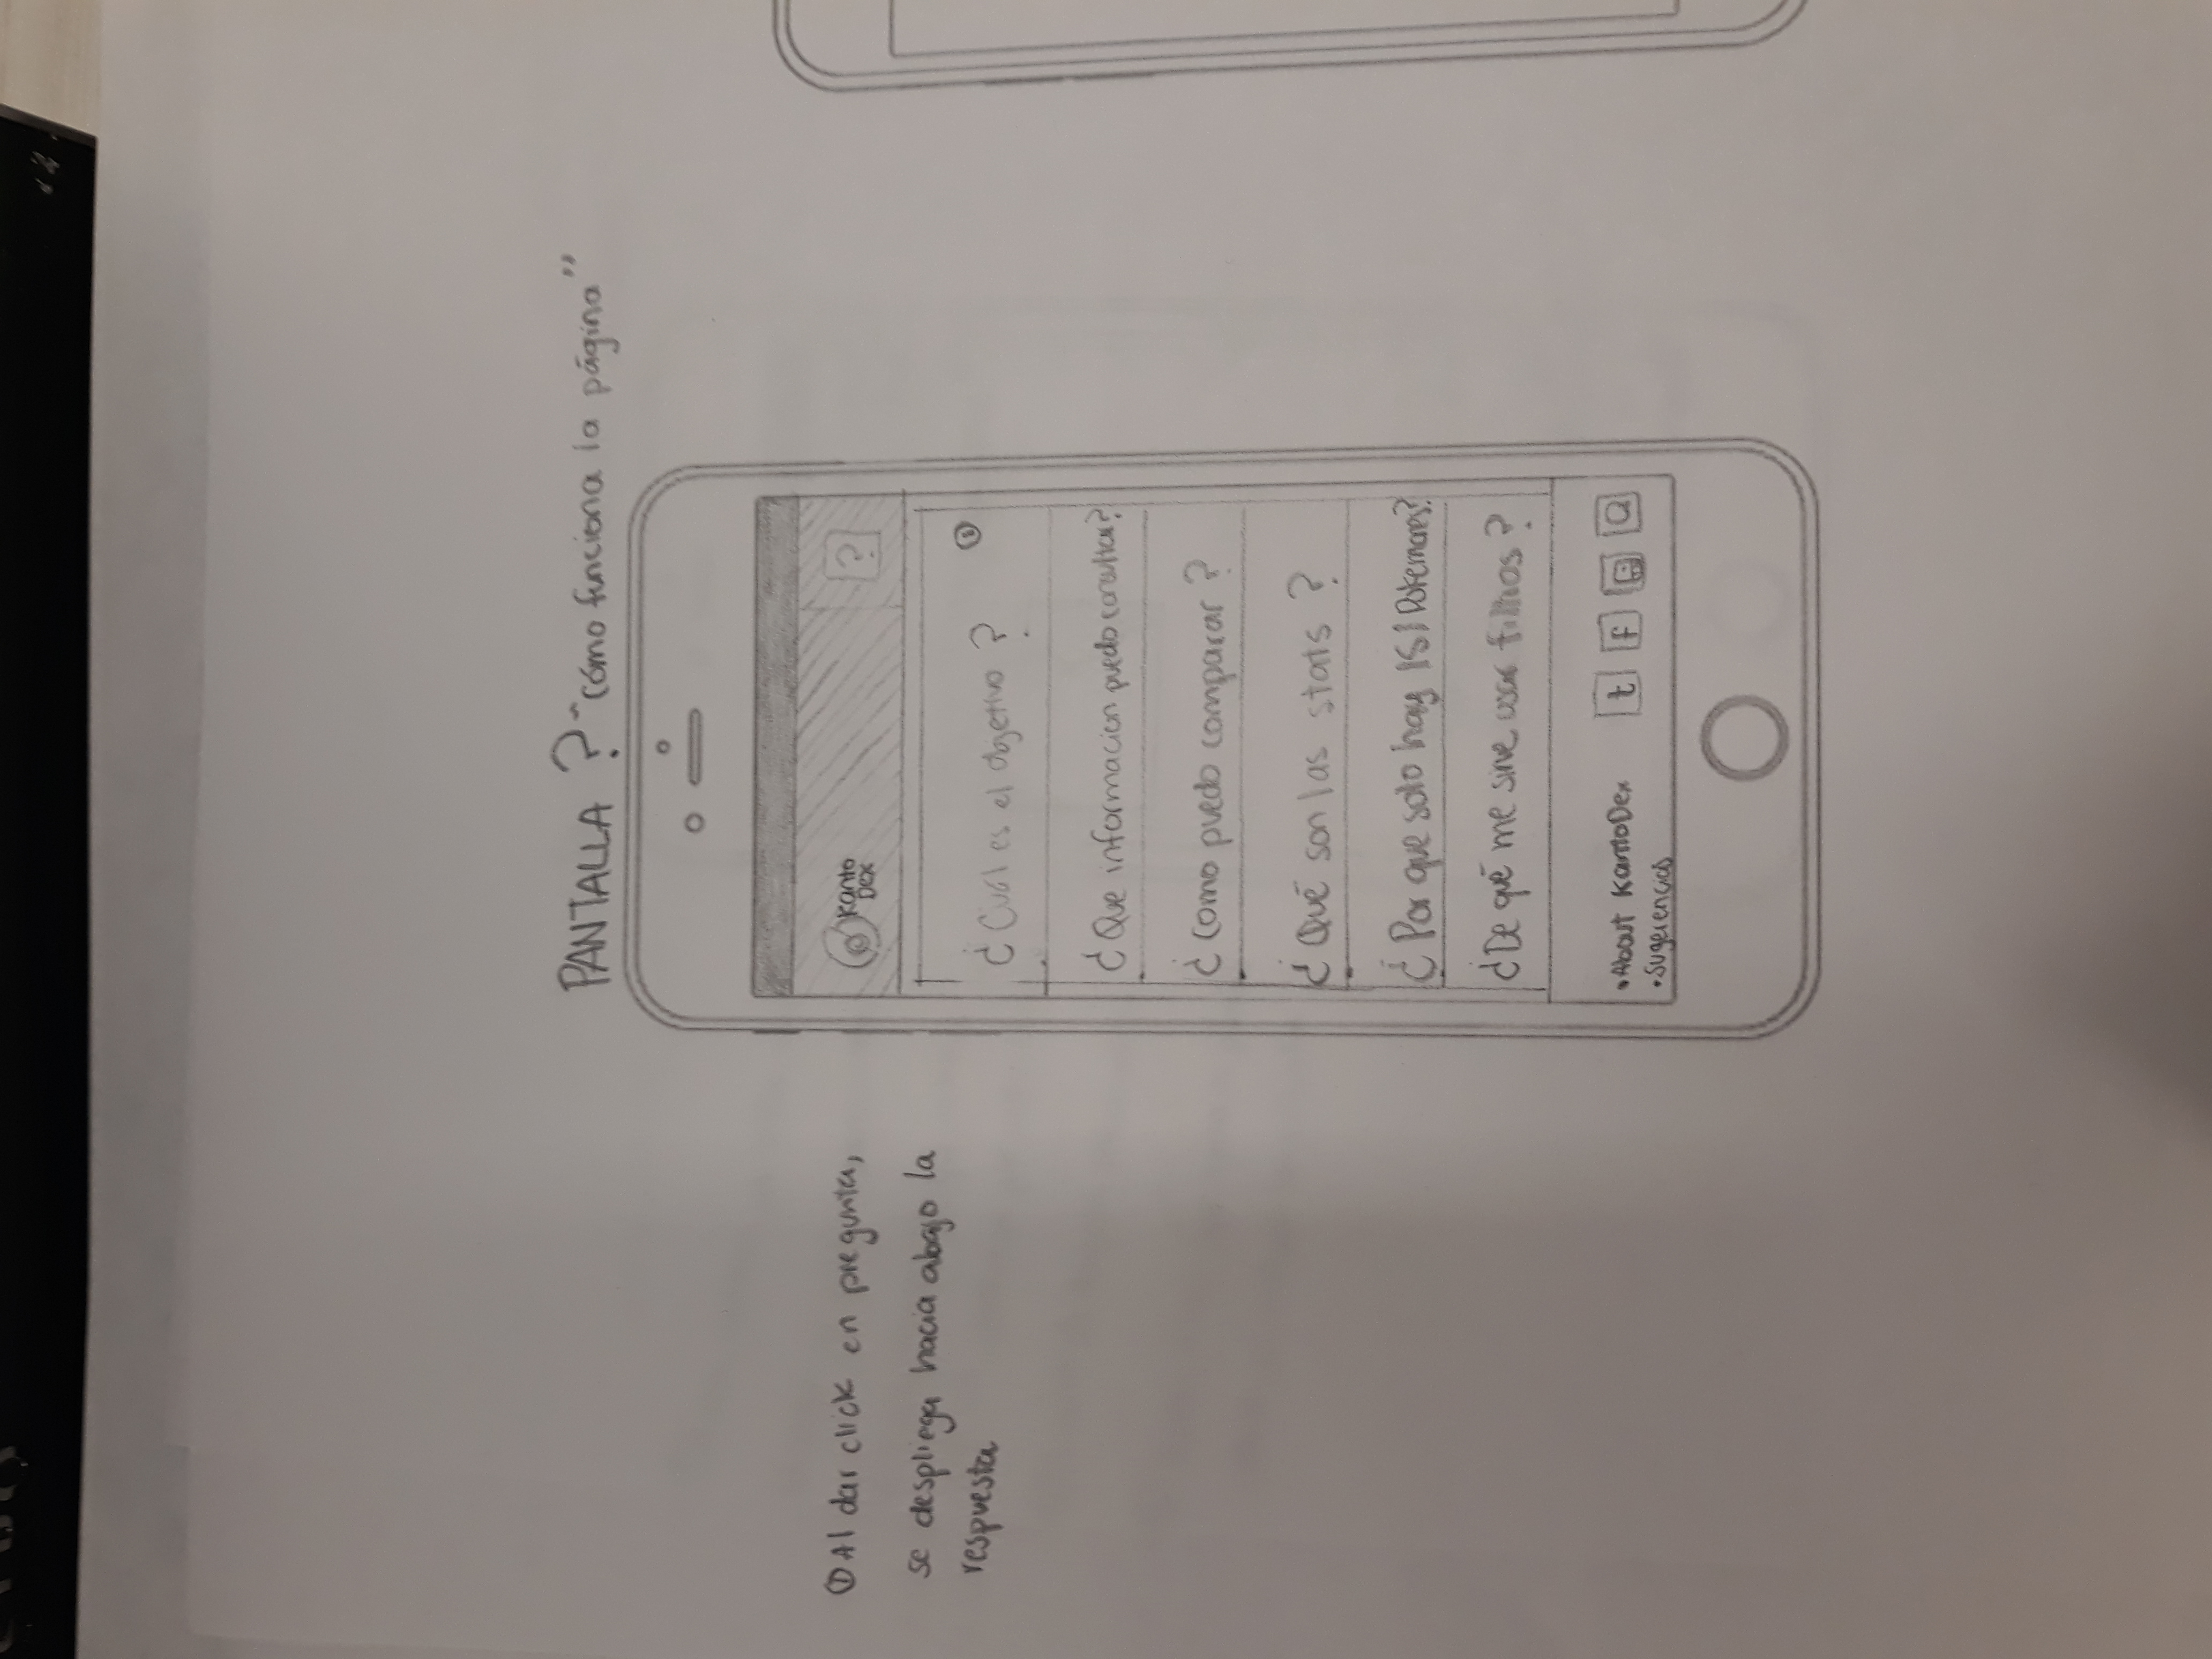 PANTALLA ? "cómo funciona la página"
① Al dar click en pregunta,
se despliega hacia abajo la
respuesta
Kanto
Dex
?
¿Cuál es el objetivo?
①
¿Que informacion puedo consultar?
¿Como puedo comparar?
¿Qué son las stats?
¿Por que solo hay 151 Pokemones?
¿De qué me sirve usar filtros?
•About KantoDex
t f
•Sugerencias